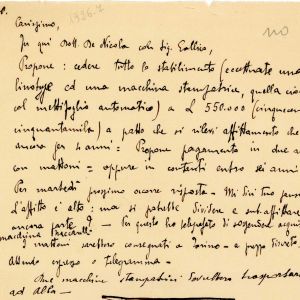 1926-7
no
Carissimo,
Fu qui Dott. De Nicola col Sig. Gallico,
Propone: cedere tutto lo stabilimento (eccettuate una
linotype ed una macchina stampatrice, quella cio
col mettifoglio automatico) a L 550.000 (cinquecen
cinquantamila) a patto che si rilevi affittamento che
ancora per 4 anni = Propone pagamento in due a
con mattoni = oppure in contenti entro sei anni
Per martedì prossimo occorre risposta - Mi dici tuo pens
L'affitto è alto: ma si potrebbe dividere e subaffittare
ancora parte? - Per questo ho telegrafato di sospendere acqui
macchina
I mattoni verrebbero consegnati a Torino - a prezzo
Attendo espresso o telegramma -
Due macchine stampatrici dovrebbero trasportar
ad Alba -